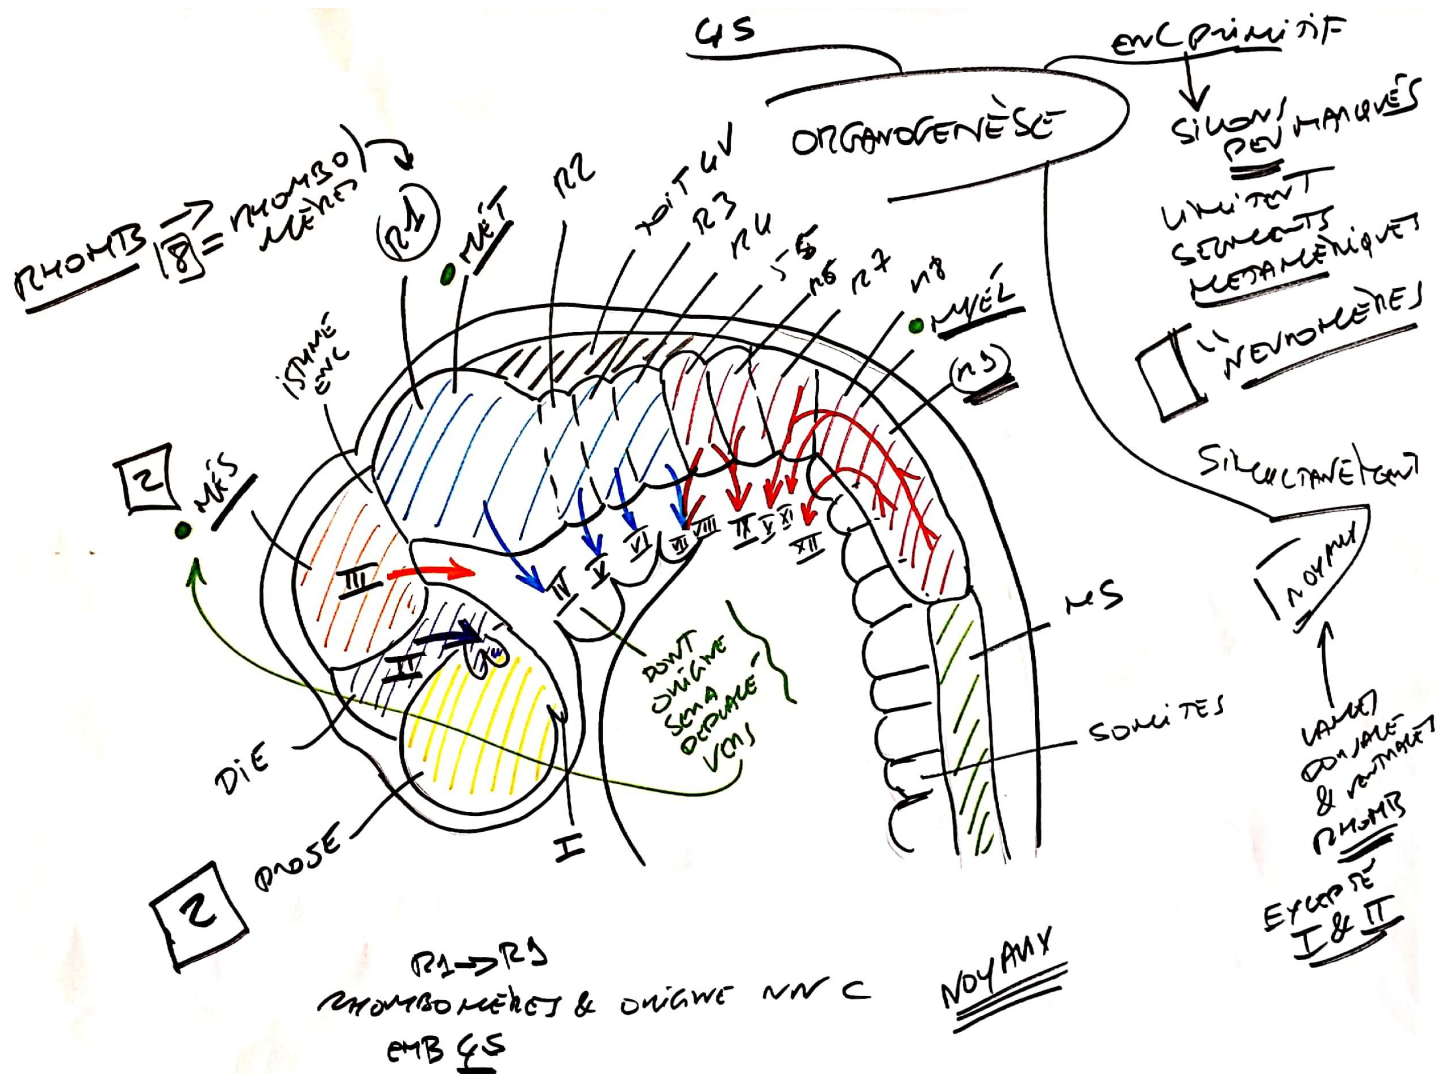 4S
ENC PRIMITIF
ORGANOGENÈSE
SILLONS
PEU MARQUÉS
LIMITENT
SEGMENTS
METAMÉRIQUES
"NEUROMÈRES
SIMULTANÉMENT
NOYAUX
LAMES
DORSALE
& VENTRALES
RHOMB
EXCEPTÉ
I & II
RHOMB → 8 = RHOMBO
MÈRES
R1
MÉT
R2
TOIT 4V
R3
R4
R6
R7
R8
MYÉL
ISTHME
ENC
2
MÉS
III
II
IV
V
VI
VII
VIII
IX
X
XI
XII
DONT
ORIGINE
SERA
DÉPLACÉ
VERS
MS
SOMITES
DIE
PROSE
I
2
RHOMBOMÈRES & ORIGINE NN C
EMB 4S
NOYAUX